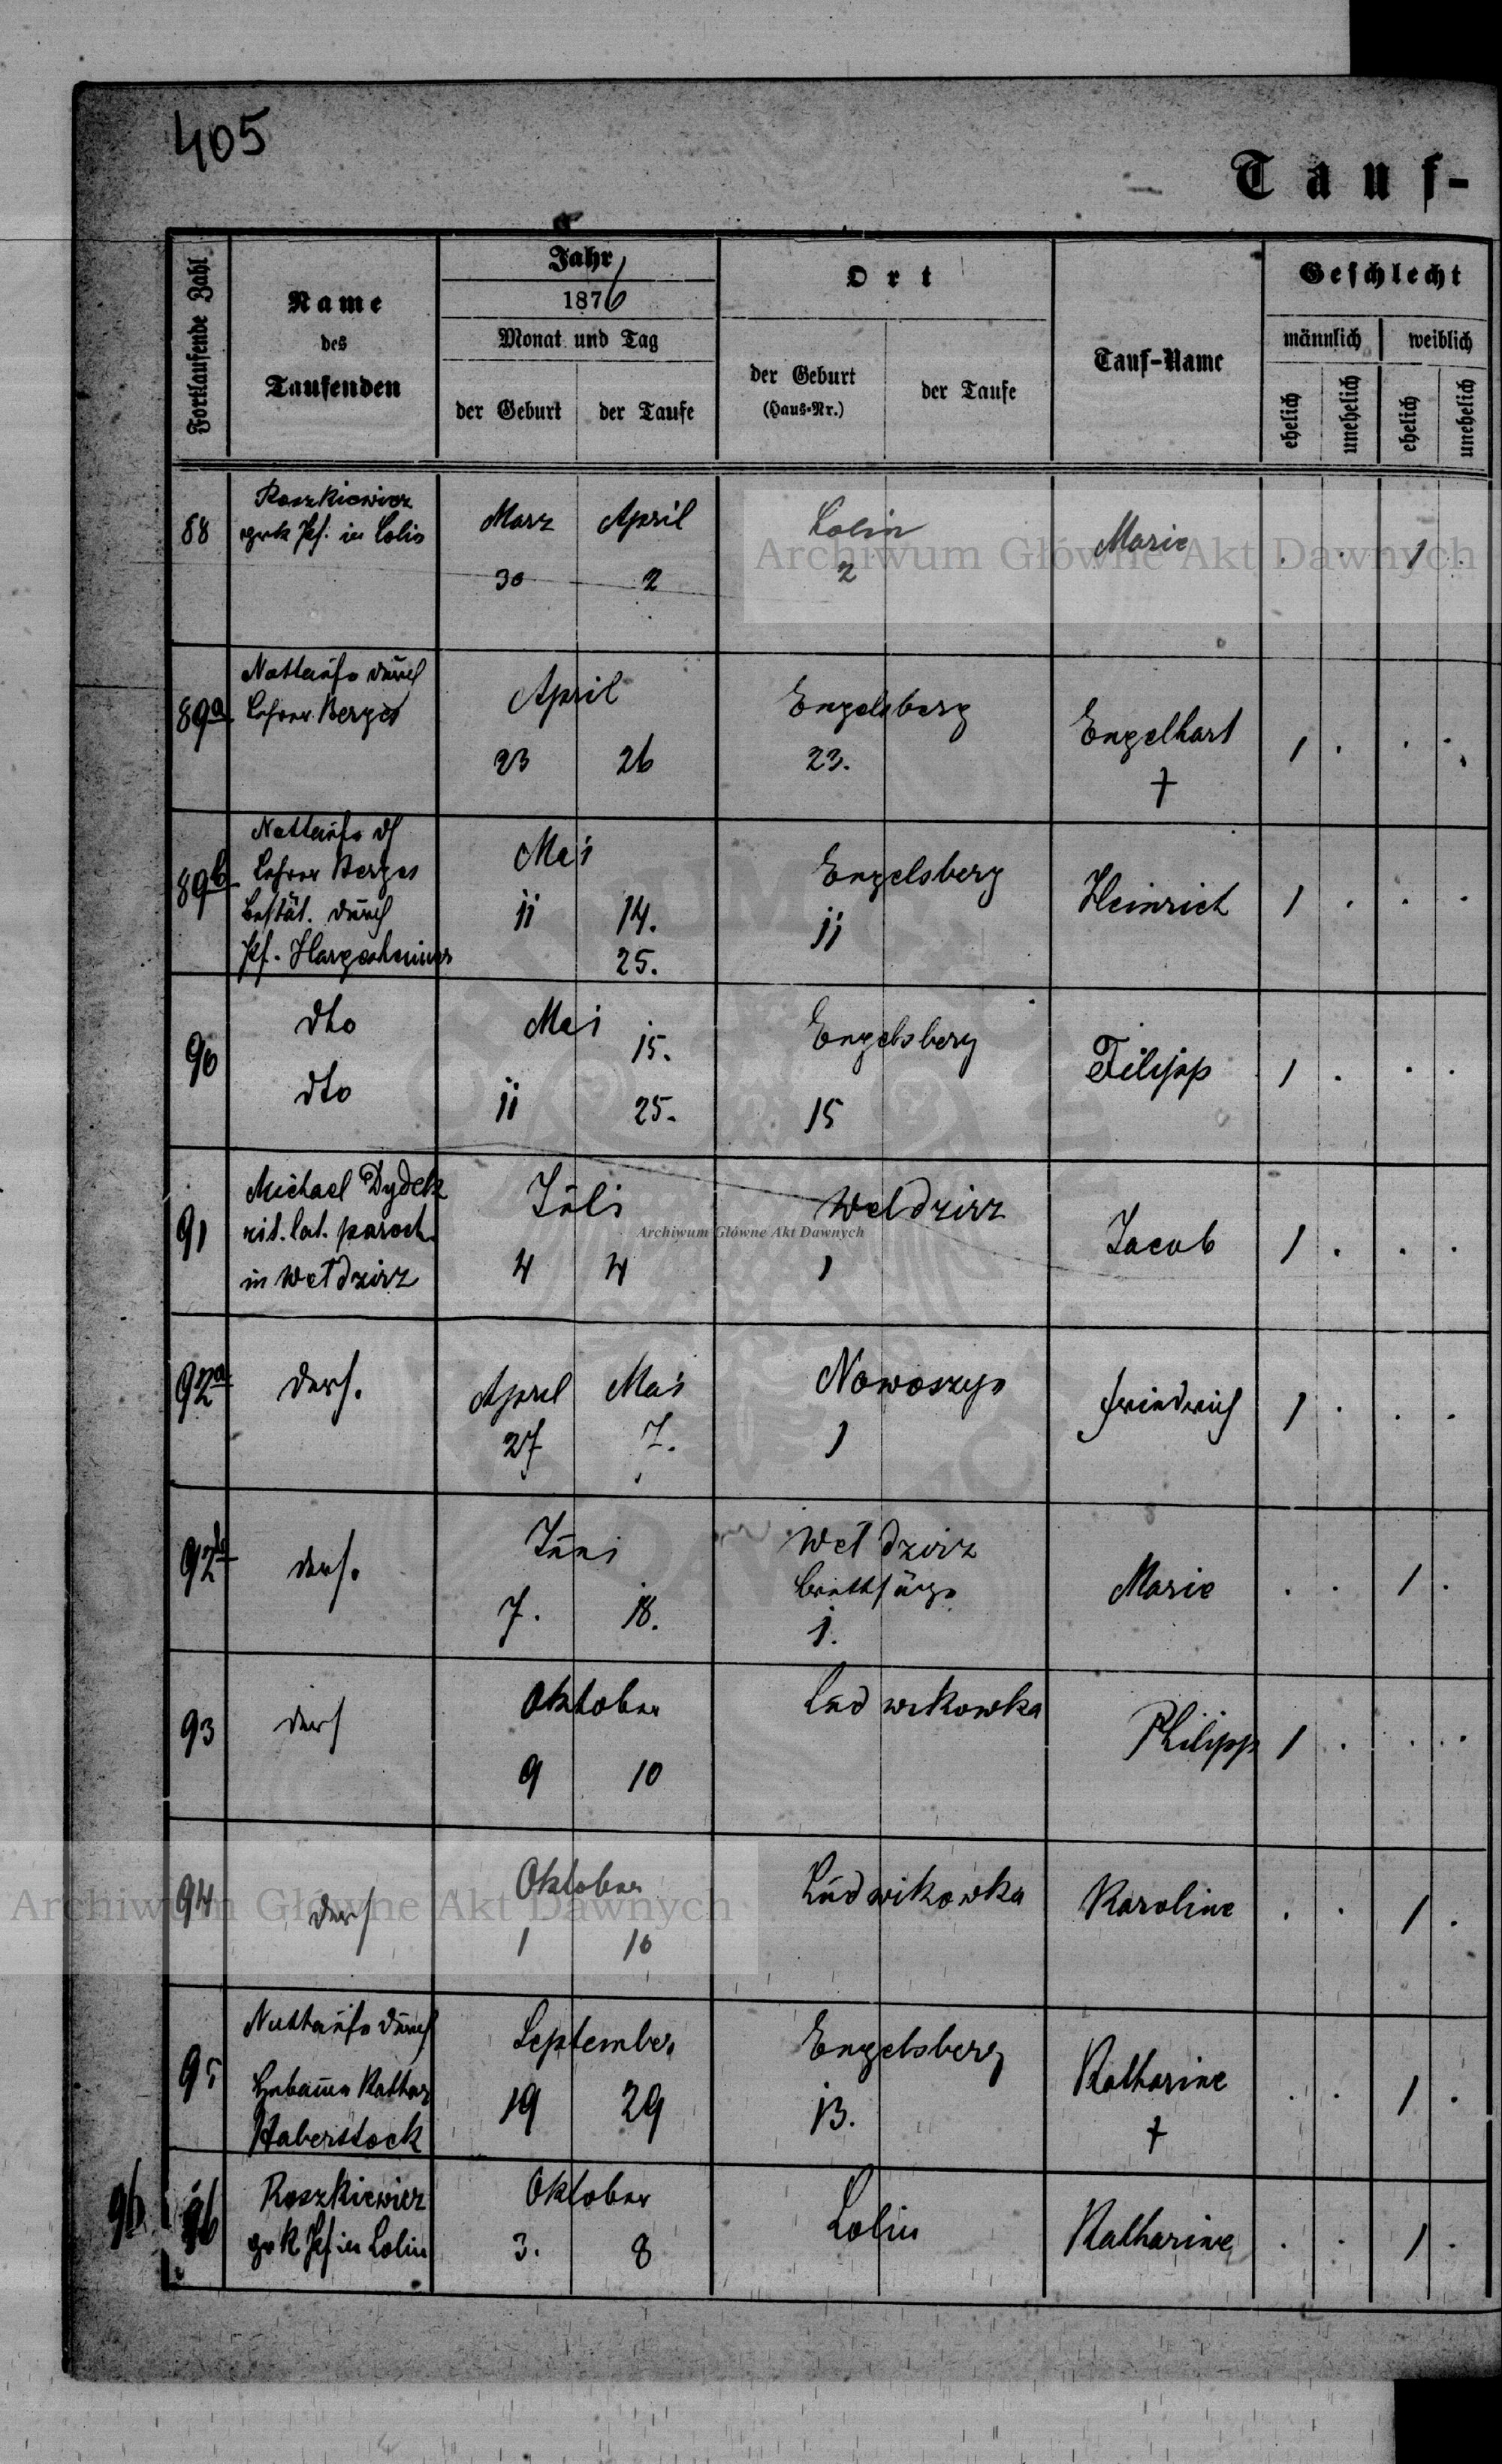 405
Tauf-
Fortlaufende Zahl
Name
des
Taufenden
Jahr
1876
Monat und Tag
der Geburt
der Taufe
Ort
der Geburt
(Haus-Nr.)
der Taufe
Tauf-Name
Geschlecht
männlich
weiblich
ehelich
unehelich
ehelich
unehelich
88
Roszkiewicz
grk Pf. in Lolin
März April
30 2
Lolin
2
Marie
. . 1 .
89a
Nottaufe durch
Lehrer Berges
April
23 26
Engelsberg
23.
Engelhart
†
1 . . .
89b
Nottaufe dh
Lehrer Berges
bestät. durch
Pf. Hargesheimer
Mai
11 14.
25.
Engelsberg
11
Heinrich
1 . . .
90
dto
dto
Mai
15.
11 25.
Engelsberg
15
Filipp
1 . . .
91
Michael Dydek
rit. lat. paroch.
in Wełdzirz
Juli
4 4
Weldzirz
1
Jacob
1 . . .
92a
ders.
April Mai
27 7.
Nowoszyn
1
Friedrich
1 . . .
92b
ders.
Juni
7. 18.
Wełdzirz
Brettsäge
1.
Marie
. . 1 .
93
ders
Oktober
9 10
Ludwikowka
Philipp
1 . . .
94
ders
Oktober
1 10
Ludwikowka
Karoline
. . 1 .
95
Nottaufe durch
Hebamme Kathar
Haberstock
September
19 29
Engelsberg
13.
Katharine
†
. . 1 .
96 96
Roszkiewicz
grk Pf in Lolin
Oktober
3. 8
Lolin
Katharine
. . 1 .
Archiwum Główne Akt Dawnych
Archiwum Główne Akt Dawnych
Archiwum Główne Akt Dawnych